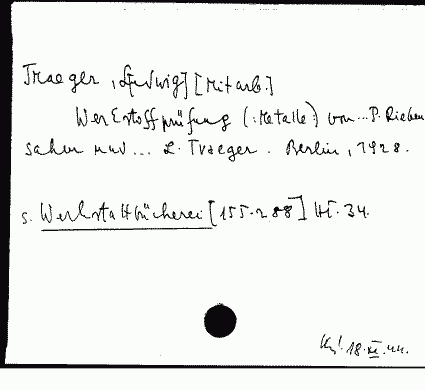 Traeger, Ludwig] [Mitarb.]
Werkstoffprüfung (: Metalle:) von ... P. Rieben
sahm und ... L. Traeger. Berlin, 1928.
s. Werkstattbücherei [155.288] H. 34.
18.XI.44.